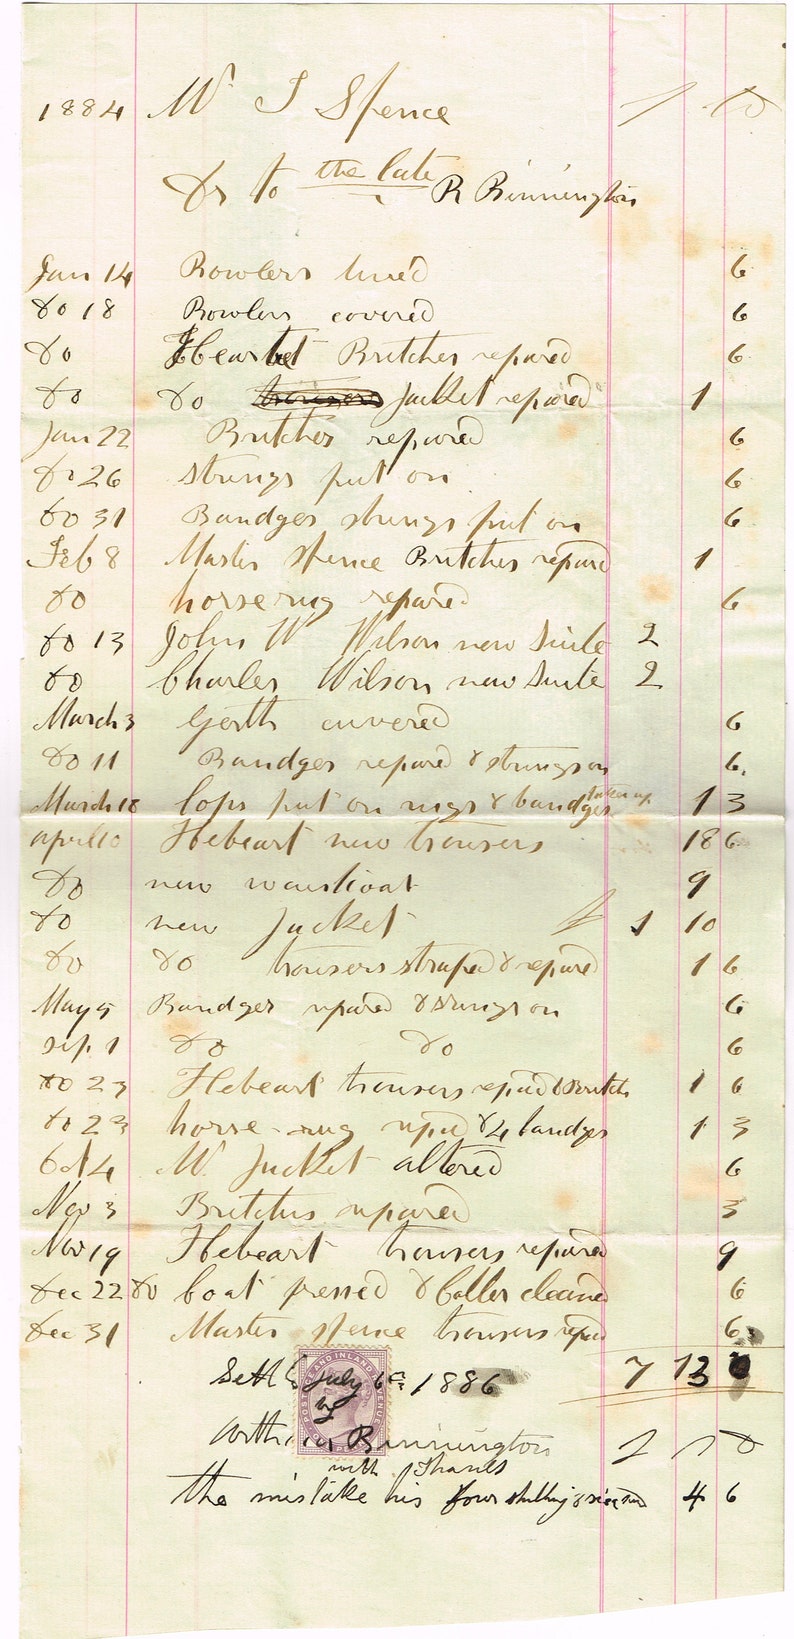 1884 Mr J Spence £ s D
Dr to the late R Binnington
Jan 14 Bowlers lined 6
Do 18 Bowlers covered 6
Do Hebeart Britches repared 6
Do Do Jacket repared 1
Jan 22 Britches repared 6
Do 26 strings put on 6
Do 31 Bandges strings put on 6
Feb 8 Master Spence Britches repard 1
Do horse rug repared 6
Do 13 John W Wilson new Suite 2
Do Charles Wilson new Suite 2
March 3 Gerth cuvered 6
Do 11 Bandges repared & strings on 6
March 18 lops put on rugs & bandges taken up 1 3
april 10 Hebeart new trousers 18 6
Do new waistcoat 9
Do new Jacket £ 1 10
Do Do trousers straped & repared 1 6
May 5 Bandges repared & strings on 6
Sep. 1 Do Do 6
Do 23 Hebeart trousers repard & Britch 1 6
Do 23 horse-rug repard & 4 bandges 1 3
Oct 4 W Jacket altered 6
Nov 3 Britches repared 3
Nov 19 Hebeart trousers repared 9
Dec 22 Do Coat pressed & Coller cleaned 6
Dec 31 Master Spence trousers repard 6
7 13
July 6th 1886
by
Binnington £ s D
with Thanks
the mistake his four shilling & six 4 6